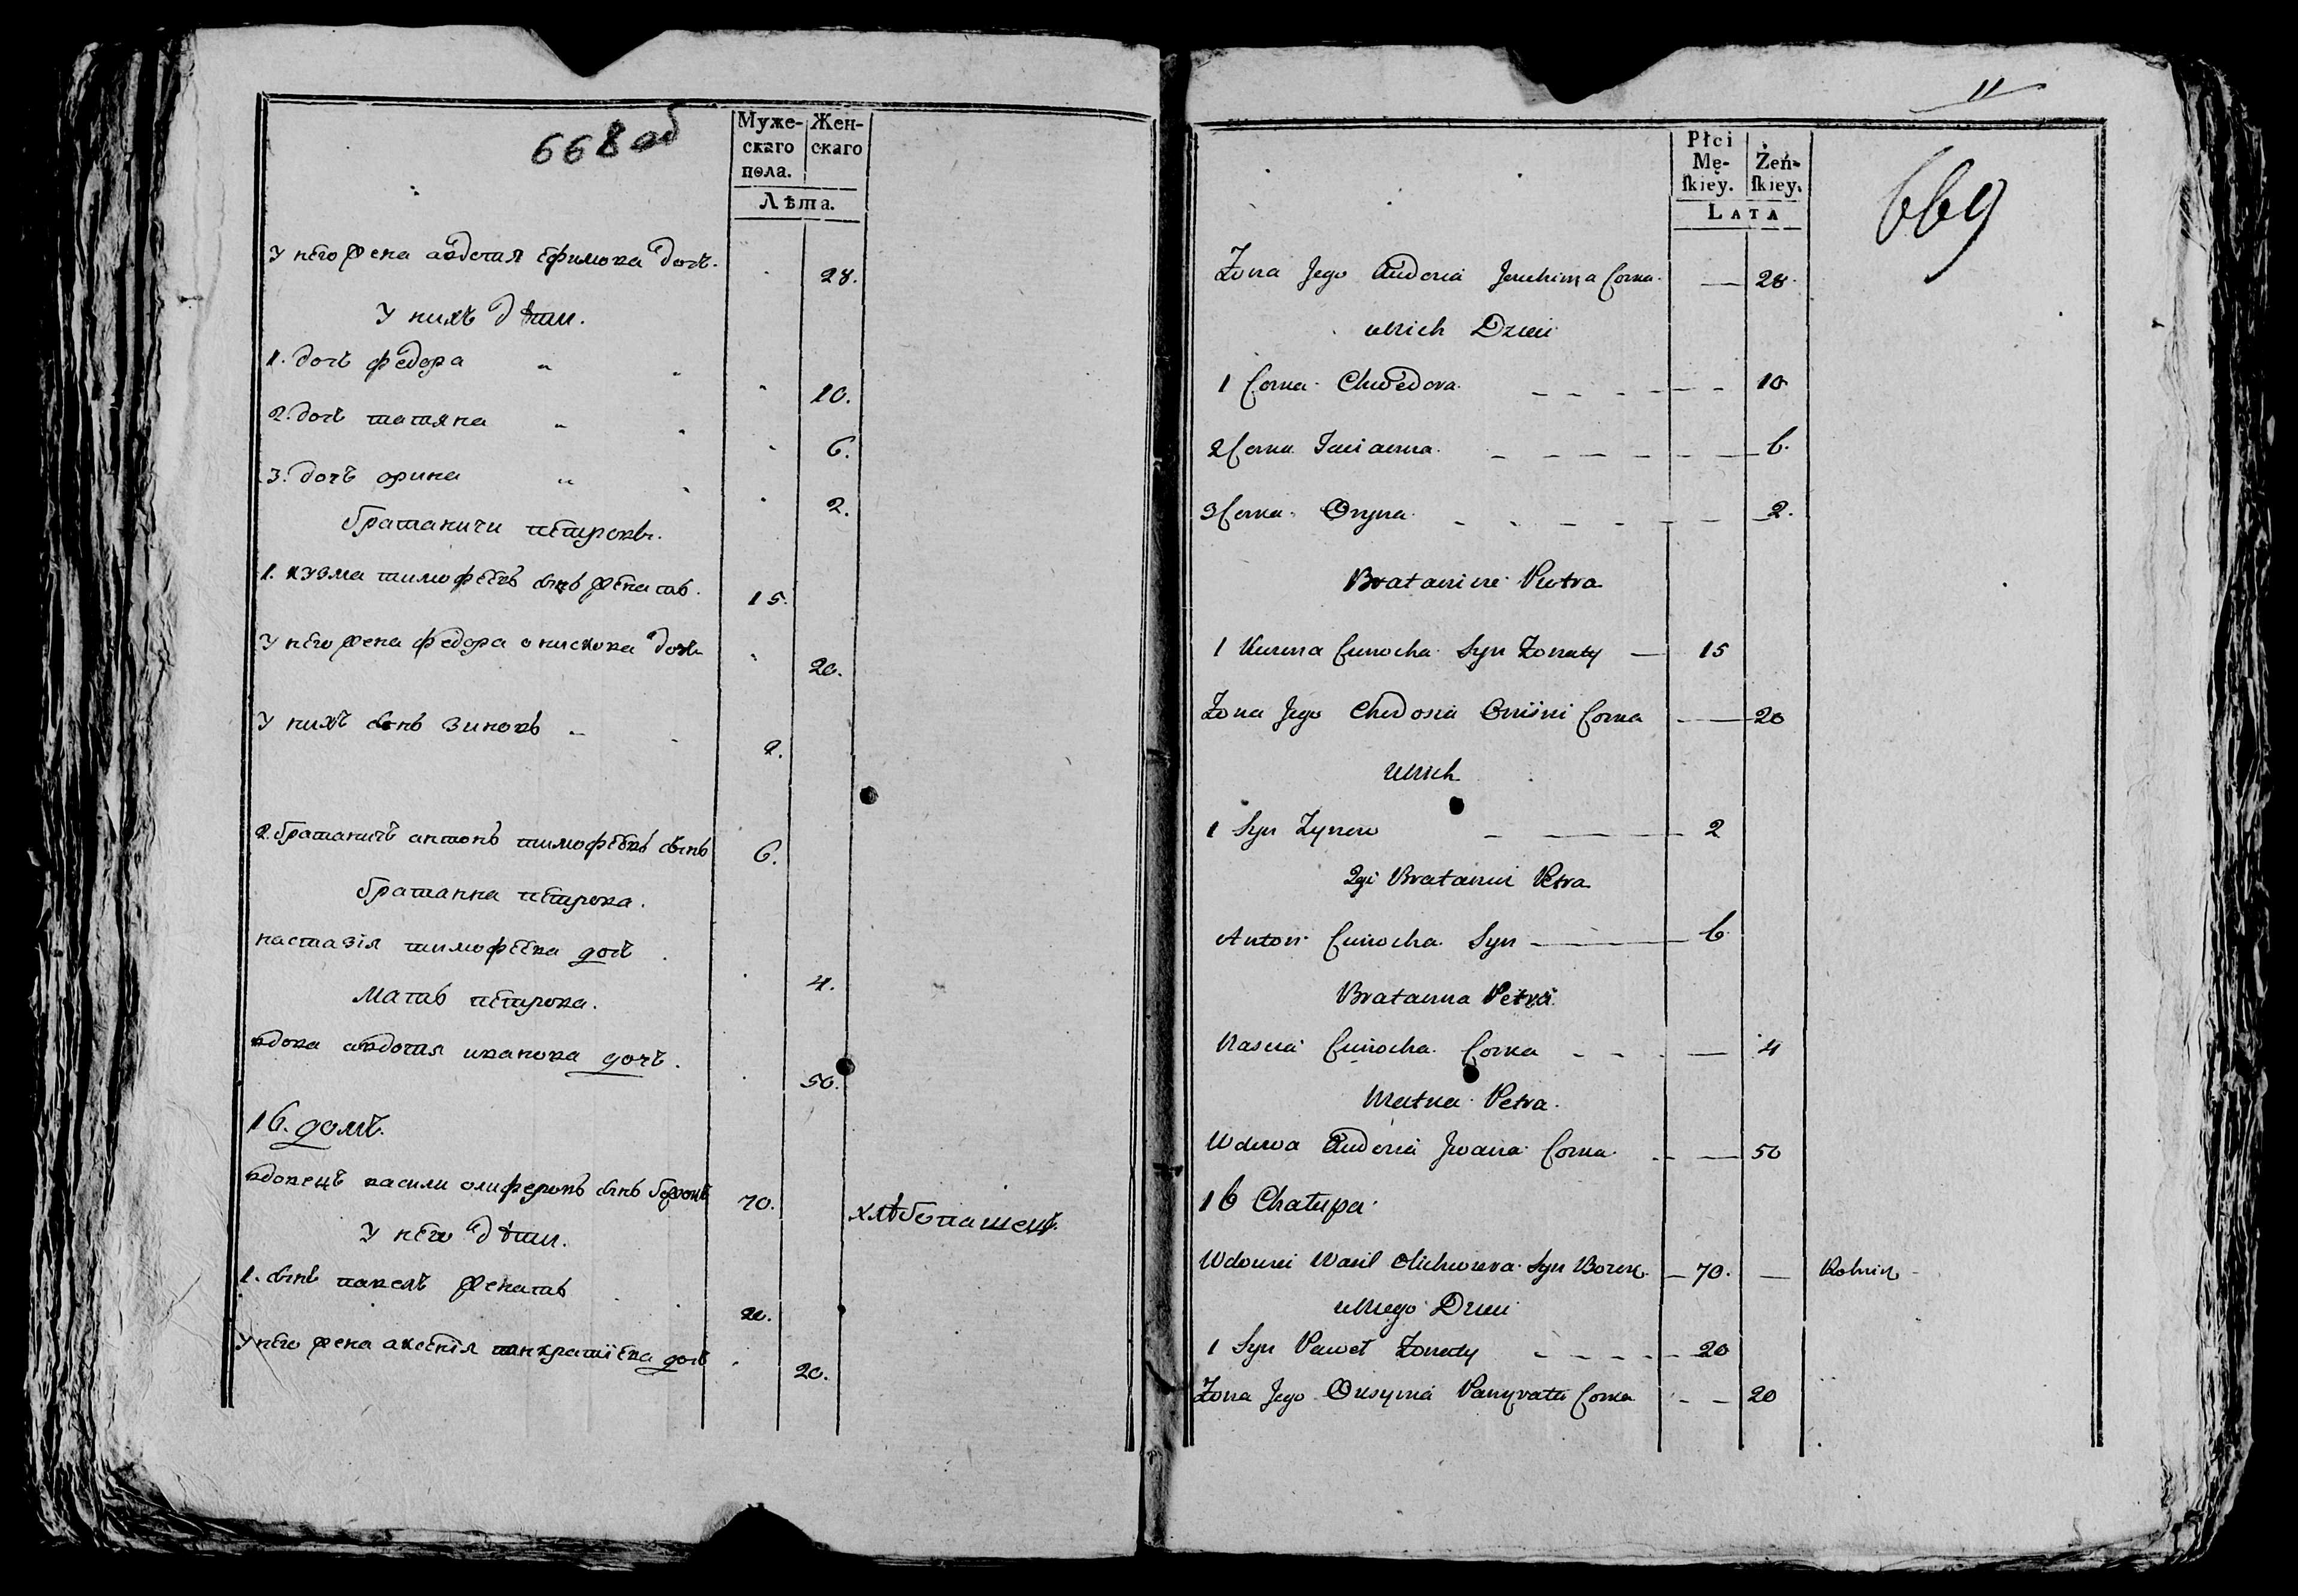 668 об
Муже-
скаго
пола.
Жен-
скаго
Лѣта.
у него жена авдотая ефимова дочь. 28.
у нихъ дѣти.
1. дочь федора 10.
2. дочь татяна 6.
3. дочь орина 2.
братаничи петровы.
1. кузма тимофеевъ сынъ женатъ. 15.
у него жена федора онискова дочь 20.
у нихъ сынъ зиновъ 2.
2. братаничъ антонъ тимофеевъ сынъ 6.
братанна петрова.
настазія тимофеева дочь 4.
мать петрова.
вдова авдотая иванова дочь. 50.
16. домъ.
вдовецъ васили олиферовъ сынъ 70. хлѣбопашецъ.
у него дѣти.
1. сынъ павелъ женатъ 20.
у него жена аксения панкратиева дочь 20.
11
669
Płci
Mę-
skiey.
Żeń-
skiey.
LATA
Zona Jego Audocia Jeuchima Corka 28.
unich Dzieci
1 Corka Chwedora 10
2 Corka Tacianna 6.
3 Corka Oryna 2.
Bratanice Piotra
1 Kuzma Cimocha Syn Zonaty 15
Zona Jego Chwdosia Onisni Corka 20
unich
1 Syn Zynow 2
2gi Bratanie Petra
Anton Cimocha Syn 6
Bratanna Petra
Nascia Cimocha Corka 4
Matka Petra.
Wdowa Audocia Jwana Corka 50
16 Chałupa
Wdowiec Wasil Olichwiera Syn 70. Rolnik
uniego Dzieci
1 Syn Paweł Zonaty 20
Zona Jego Oxsynia Pankrata Corka 20